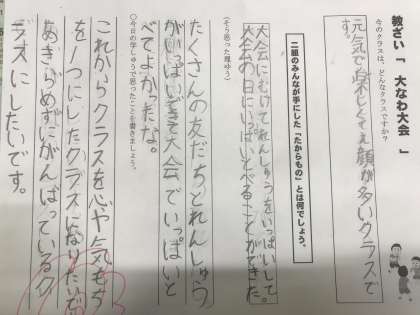 教ざい「 大なわ大会 」
今のクラスは、どんなクラスですか？
元気で楽しくてえ顔が多いクラスで
す。
二組のみんなが手にした「たからもの」とは何でしょう。
大会にむけてれんしゅうをいっぱいして。
大会の日にいっぱいとべることができた。
(そう思った理ゆう)
たくさんの友だちとれんしゅう
がいっぱいできて大会でいっぱいと
べてよかったな。
○今日の学しゅうで思ったことを書きましょう。
これからクラスを心や気もち
を1つにしたクラスになりたいで
あきらめずにがんばっているク
ラスにしたいです。